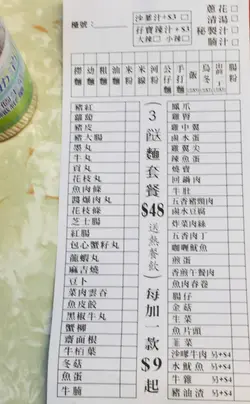 蔥花
清湯
秘製汁
腩汁
檯號：
沙薑汁+$3
仔寶辣汁+$3
大辣 小辣
粗麵
油麵
米粉
米線
河粉
公仔麵
手打麵
飯
烏冬
腸粉
豬紅
蘿蔔
豬皮
豬大腸
墨丸
牛丸
貢丸
花枝丸
魚肉條
醬爆肉丸
花枝條
芝士腸
紅腸
包心蟹籽丸
龍蝦丸
麻吉燒
豆卜
菜肉雲吞
魚皮餃
黑椒牛丸
蟹柳
齋面根
牛柏葉
冬菇
魚蛋
牛腩
3餸麵套餐$48送熱餐飲
每加一款$9起
鳳爪
雞腎
雞中翼
鹵水蛋
雞翼尖
辣魚蛋
燒賣
回鍋肉
牛肚
五香豬頭肉
鹵水豆腐
炸菜肉絲
五香肉丁
咖喱魷魚
煎蛋
香煎午餐肉
魚肉春卷
腸仔
金菇
生菜
魚片頭
韮菜
沙嗲牛肉 另+$4
水魷魚 另+$4
牛雜 另+$4
豬油渣 另+$4